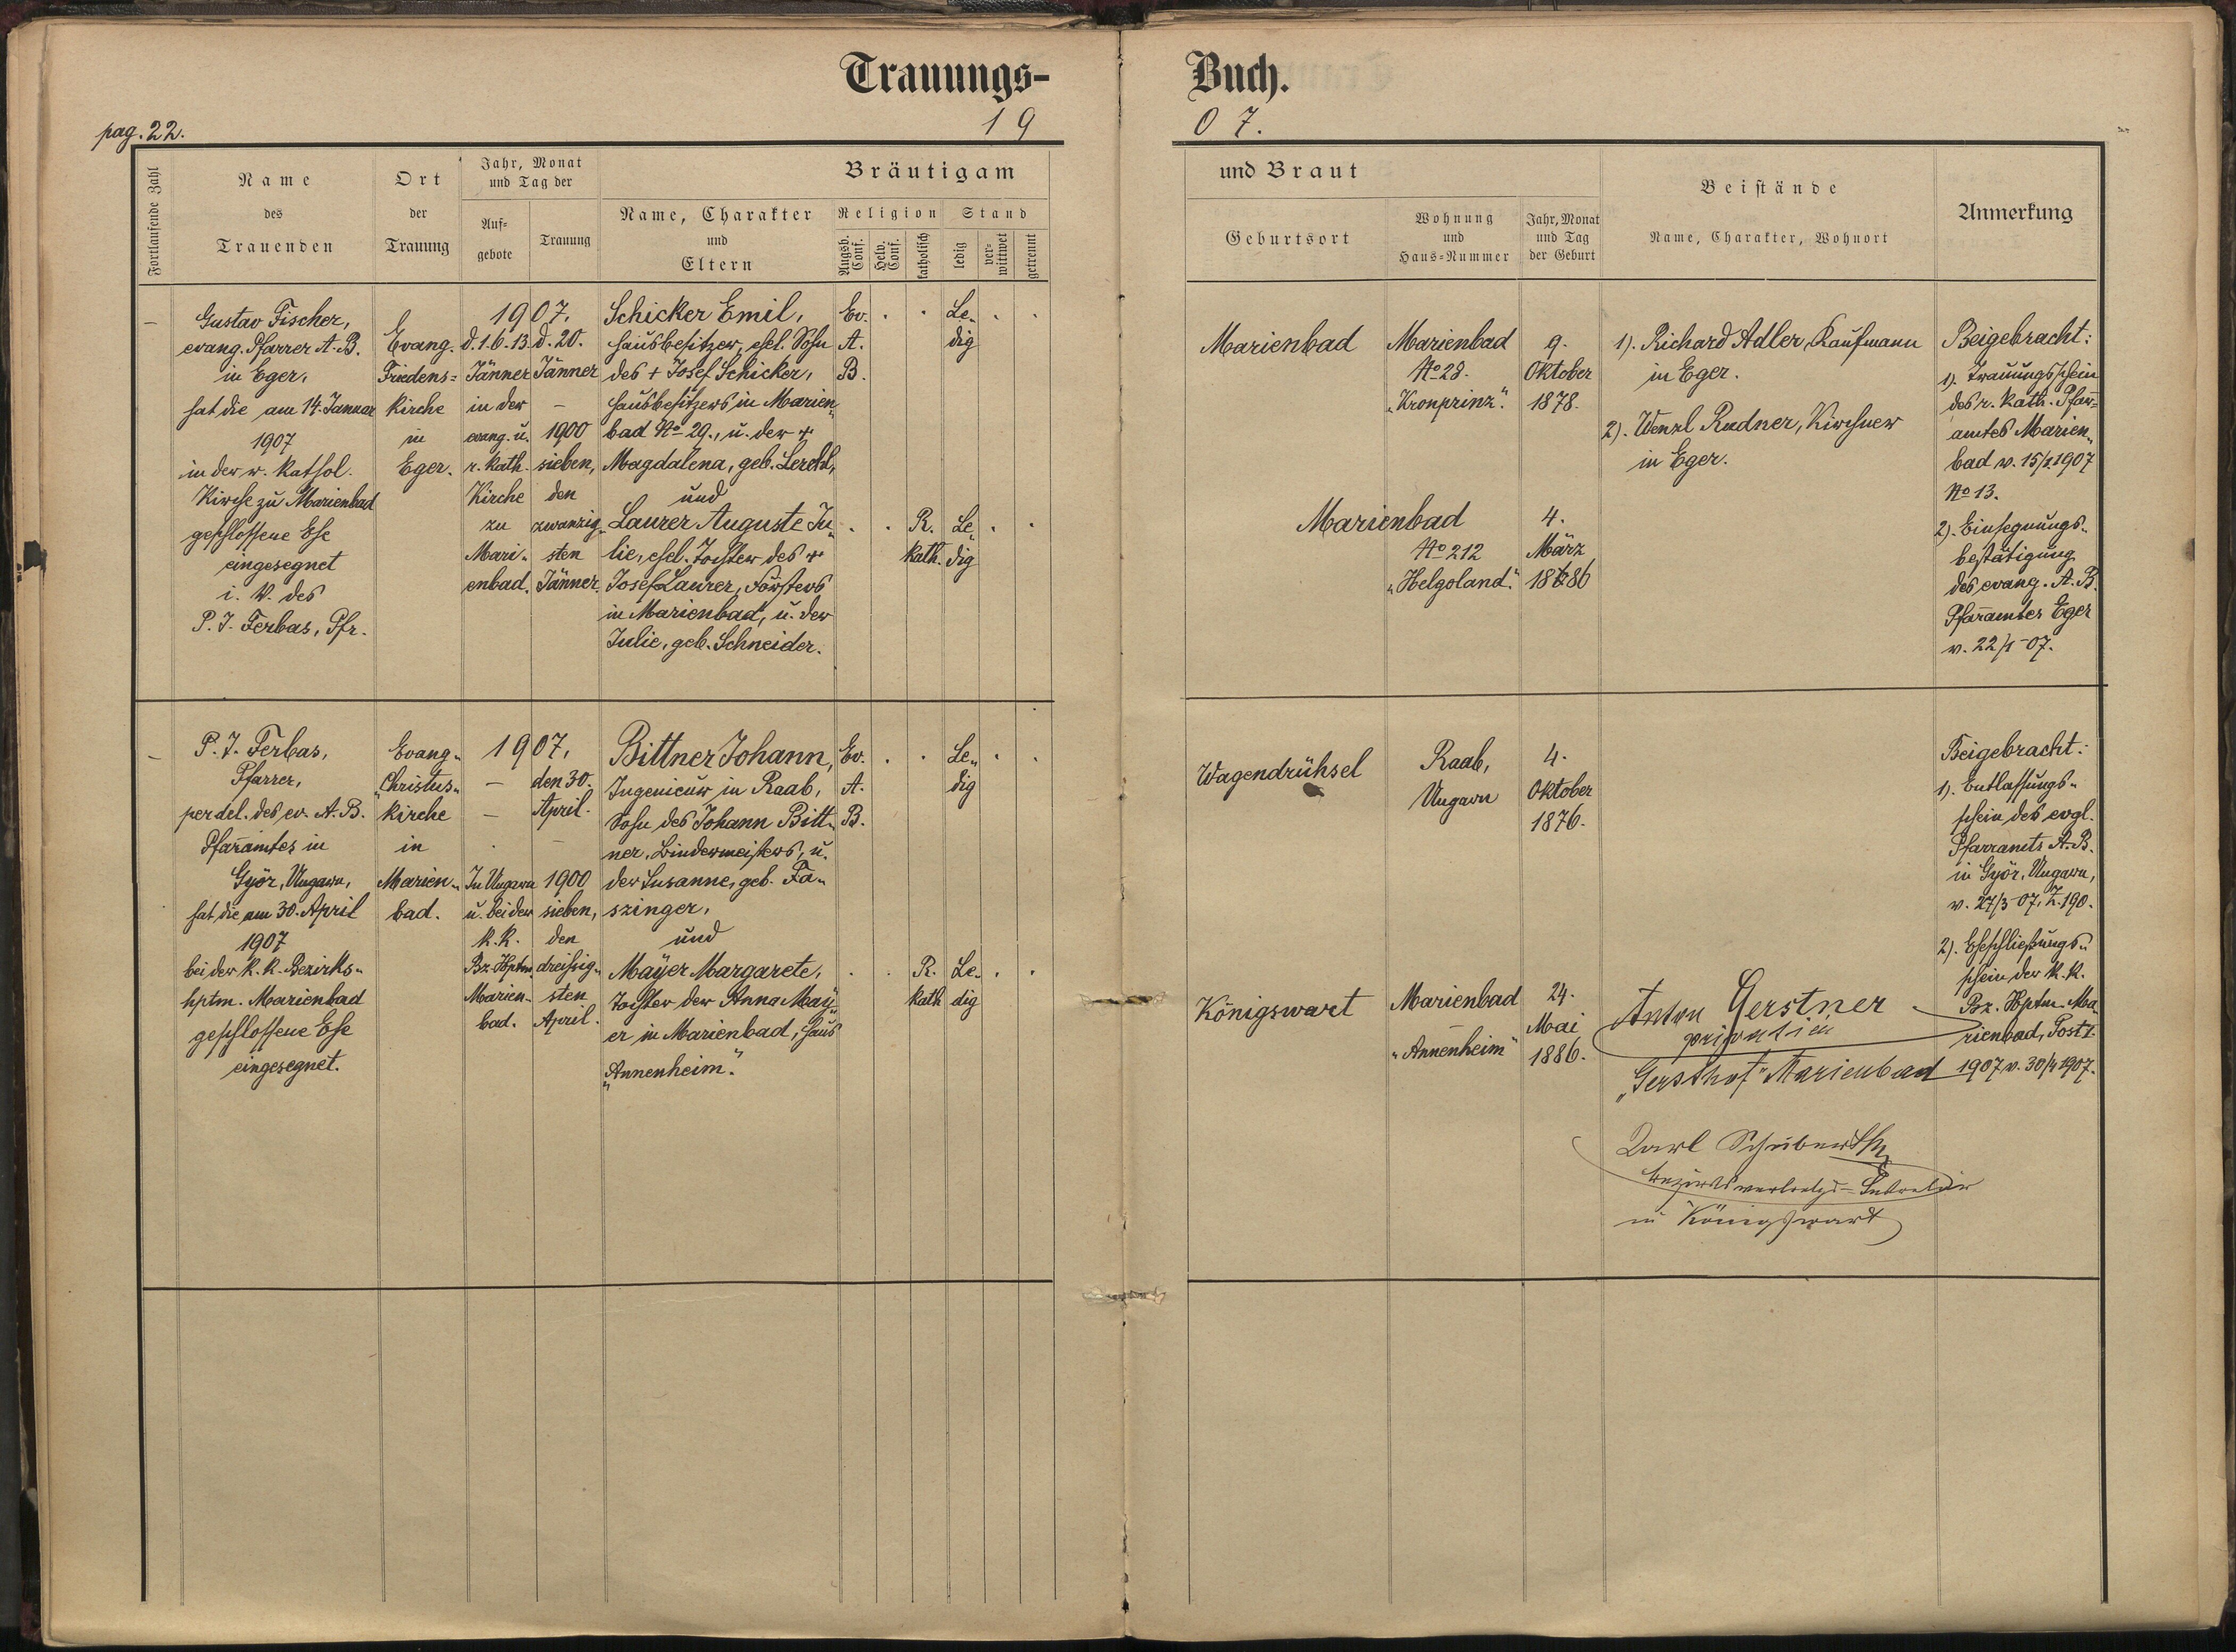 Trauungs-
Buch.
pag. 22.
19
07.
Fortlaufende Zahl
Name
des
Trauenden
Ort
der
Trauung
Jahr, Monat
und Tag der
Auf-
gebote
Trauung
Bräutigam
Name, Charakter
und
Eltern
Religion
Augsb.
Conf.
Helv.
Conf.
katholisch
Stand
ledig
ver-
wittwet
getrennt
und Braut
Geburtsort
Wohnung
und
Haus-Nummer
Jahr, Monat
und Tag
der Geburt
Beistände
Name, Charakter, Wohnort
Anmerkung
Gustav Fischer,
evang. Pfarrer A. B.
in Eger,
hat die am 14. Januar
1907
in der r. kathol.
Kirche zu Marienbad
geschlossene Ehe
eingesegnet
i. V. des
P. J. Ferbas, Pfr.
Evang.
Friedens=
kirche
in
Eger.
1907.
d. 1. 6. 13.
Jänner
in der
evang. u.
r. kath.
Kirche
zu
Mari-
enbad.
d. 20.
Jänner
–
1900
sieben,
den
zwanzig-
sten
Jänner.
Schicker Emil,
Hausbesitzer, ehel. Sohn
des + Josef Schicker,
Hausbesitzers in Marien-
bad No 29., u. der +
Magdalena, geb. Lerchl,
und
Laurer Auguste Ju-
lie, ehel. Tochter des +
Josef Laurer, Försters
in Marienbad, u. der
Julie, geb. Schneider.
Ev.
A.
B.
Le-
dig
R.
kath.
Le-
dig
Marienbad
Marienbad
No 28.
"Kronprinz".
9.
Oktober
1878.
Marienbad
No 212
"Helgoland".
4.
März
1886
1). Richard Adler, Kaufmann
in Eger.
2). Wenzl Rudner, Kirchner
in Eger.
Beigebracht:
1). Trauungsschein
des r. kath. Pfarr-
amtes Marien-
bad v. 15/1 1907
No 13.
2). Einsegnungs-
bestätigung
des evang. A. B.
Pfarramtes Eger
v. 22/1-07.
P. J. Ferbas,
Pfarrer,
per del. des ev. A. B.
Pfarramtes in
Györ, Ungarn,
hat die am 30. April
1907
bei der k. k. Bezirks-
hptm. Marienbad
geschlossene Ehe
eingesegnet.
Evang.
"Christus-
kirche
in
Marien-
bad.
1907.
In Ungarn
u. bei der
k. k.
Bz. Hptm.
Marien-
bad.
den 30.
April.
1900
sieben,
den
dreissig-
sten
April.
Bittner Johann,
Ingenieur in Raab,
Sohn des Johann Bitt-
ner, Bindermeisters, u.
der Susanne, geb. Fa-
szinger,
und
Mayer Margarete,
Tochter der Anna May-
er in Marienbad, Haus
"Annenheim".
Ev.
A.
B.
Le-
dig
R.
kath
Le-
dig
Wagendrühsel
Raab,
Ungarn
4.
Oktober
1876.
Königswart
Marienbad
"Annenheim"
24.
Mai
1886.
Anton Gerstner
"Gersthof" Marienbad
Karl Schuberth
in Königswart
Beigebracht:
1). Entlassungs-
schein des evgl.
Pfarramts A. B.
in Györ, Ungarn,
v. 27/3-07, Z. 190.
2). Eheschließungs-
schein der k. k.
Bz. Hptm. Ma-
rienbad, Post 1.
1907 v. 30/4 1907.